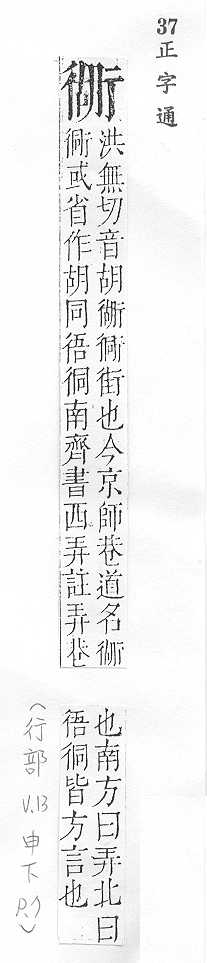 37 正字通
衚
洪無切音胡衚衕街也今京師巷道名衚
衕或省作胡同𢓲𢓘南齊書西弄註弄巷
也南方曰弄北曰
𢓲𢓘皆方言也
(行部 V.13 申下 P.7)